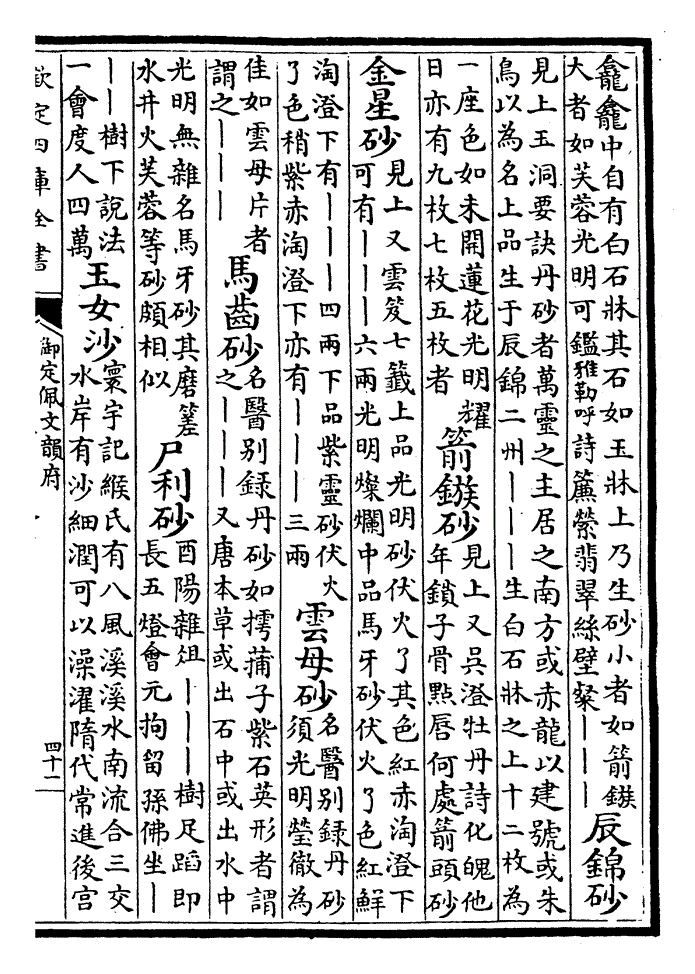 龕龕中自有白石牀其石如玉牀上乃生砂小者如箭鏃
大者如芙蓉光明可鑑雅勒呼詩簾縈翡翠絲壁粲｜｜｜
辰錦砂
見上玉洞要訣丹砂者萬靈之主居之南方或赤龍以建號或朱
鳥以為名上品生于辰錦二州｜｜｜生白石牀之上十二枚為
一座色如未開蓮花光明耀
日亦有九枚七枚五枚者
箭鏃砂
見上又吳澄牡丹詩化魄他
年鎖子骨點唇何處箭頭砂
金星砂
見上又雲笈七籤上品光明砂伏火了其色紅赤淘澄下
可有｜｜｜六兩光明燦爛中品馬牙砂伏火了色紅鮮
淘澄下有｜｜｜四兩下品紫靈砂伏火
了色稍紫赤淘澄下亦有｜｜｜三兩
雲母砂
名醫别録丹砂
須光明瑩徹為
佳如雲母片者
謂之｜｜｜
馬齒砂
名醫别録丹砂如摴蒱子紫石英形者謂
之｜｜｜又唐本草或出石中或出水中
光明無雜名馬牙砂其磨䃀
水井火芙蓉等砂頗相似
尸利砂
酉陽雜俎｜｜｜樹足蹈即
長五燈會元拘留孫佛坐｜
｜｜樹下說法
一會度人四萬
玉女沙
寰宇記緱氏有八風溪溪水南流合三交
水岸有沙細潤可以澡濯隋代常進後宫
欽定四庫全書
御定佩文韻府
四十一